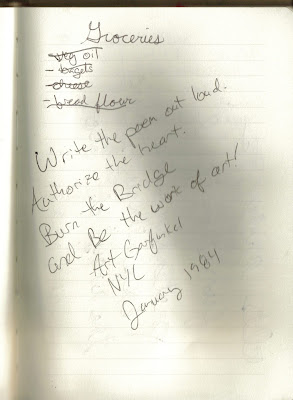 Groceries
- veg oil
- bagels
- cheese
- bread flour
Write the poem out loud.
Authorize the heart.
Burn the Bridge
and Be the work of art!
Art Garfunkel
NYC
January 1984